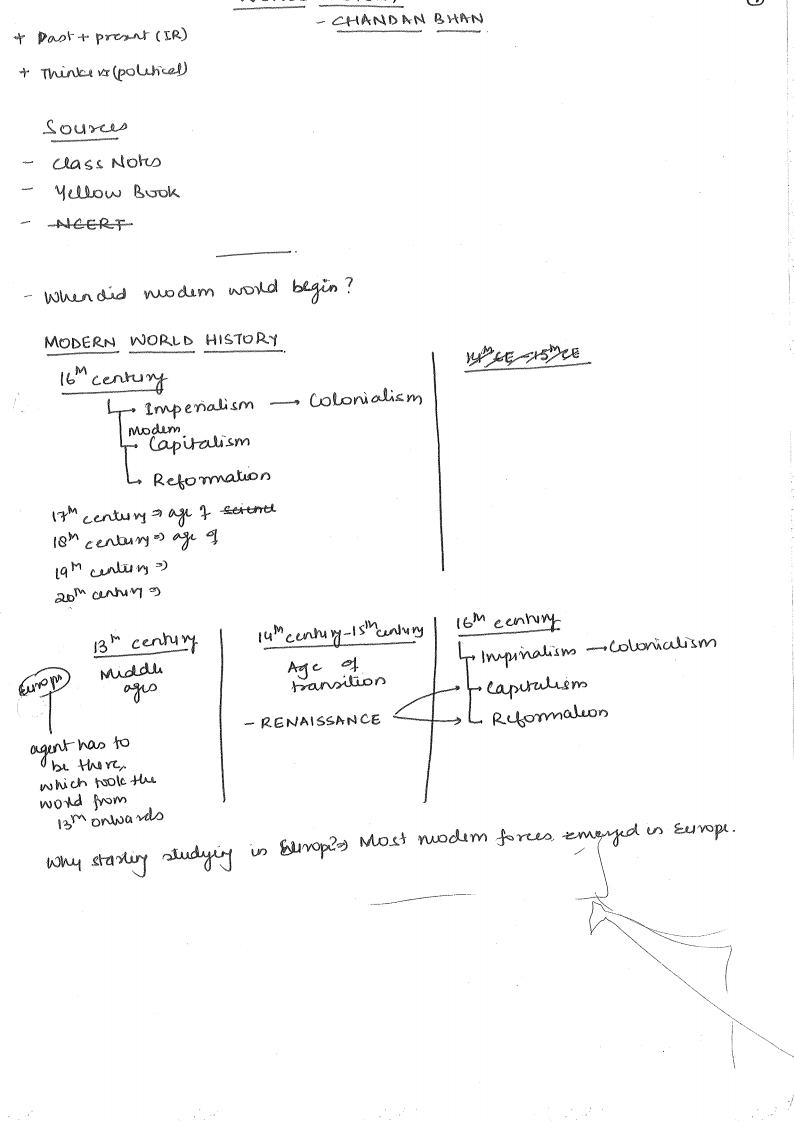 - CHANDAN BHAN
+ Past + present (IR)
+ Thinkers (political)
Sources
- Class Notes
- Yellow Book
- NCERT
- When did modern world begin?
MODERN WORLD HISTORY
14th CE - 15th CE
16th century
Imperialism → Colonialism
Modern
Capitalism
Reformation
17th century ⇒ age of science
18th century ⇒ age of
19th century ⇒
20th century ⇒
13th century
Middle
ages
Europe
agent has to
be there,
which took the
world from
13th onwards
14th century - 15th century
Age of
transition
- RENAISSANCE
16th century
Imperialism → Colonialism
Capitalism
Reformation
Why starting studying in Europe? ⇒ Most modern forces emerged in Europe.